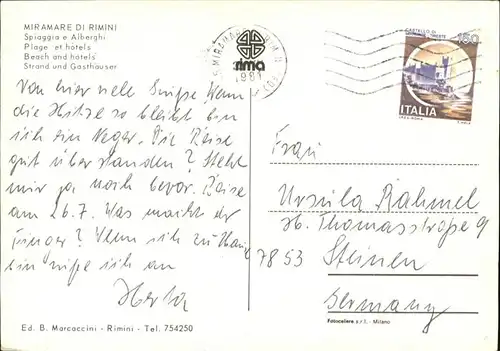 MIRAMARE DI RIMINI
Spiaggia e Alberghi
Plage et hôtels
Beach and hotels
Strand und Gasthäuser
rimo
1981
CASTELLO DI
TRIESTE
150
ITALIA
Von hier viele Grüße. Wenn
die Hitze so bleibt bin
ich ein Neger. Die Reise
gut überstanden? Steht
mir ja noch bevor. Reise
am 26.7. Was macht der
Finger? Wenn ich zu Hause
bin rufe ich an
Herta
Frau
Ursula Rahmel
Hb. Thomasstraße 9
7853 Steinen
Germany
Ed. B. Marcaccini - Rimini - Tel. 754250
Fotocelere s.r.l. - Milano